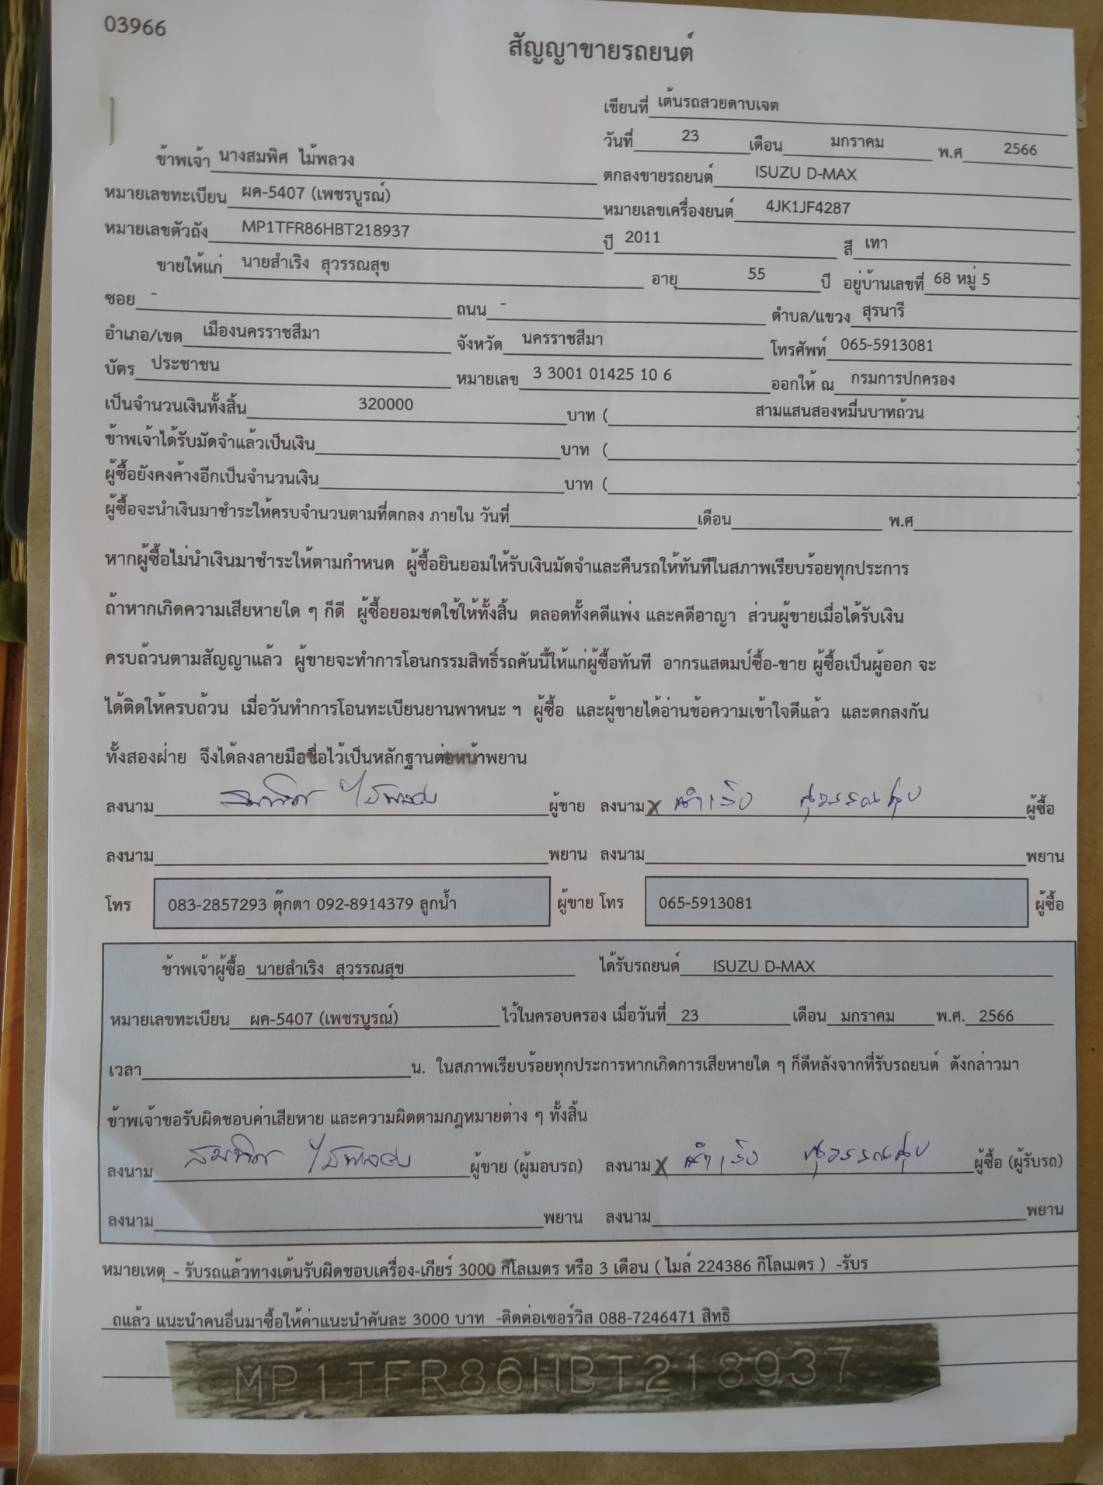 03966
สัญญาขายรถยนต์
เขียนที่ เต้นรถสวยดาบเจต
วันที่ 23 เดือน มกราคม พ.ศ 2566
ข้าพเจ้า นางสมพิศ ไม้พลวง ตกลงขายรถยนต์ ISUZU D-MAX
หมายเลขทะเบียน ผค-5407 (เพชรบูรณ์) หมายเลขเครื่องยนต์ 4JK1JF4287
หมายเลขตัวถัง MP1TFR86HBT218937 ปี 2011 สี เทา
ขายให้แก่ นายสำเริง สุวรรณสุข อายุ 55 ปี อยู่บ้านเลขที่ 68 หมู่ 5
ซอย - ถนน - ตำบล/แขวง สุรนารี
อำเภอ/เขต เมืองนครราชสีมา จังหวัด นครราชสีมา โทรศัพท์ 065-5913081
บัตร ประชาชน หมายเลข 3 3001 01425 10 6 ออกให้ ณ กรมการปกครอง
เป็นจำนวนเงินทั้งสิ้น 320000 บาท ( สามแสนสองหมื่นบาทถ้วน )
ข้าพเจ้าได้รับมัดจำแล้วเป็นเงิน บาท ( )
ผู้ซื้อยังคงค้างอีกเป็นจำนวนเงิน บาท ( )
ผู้ซื้อจะนำเงินมาชำระให้ครบจำนวนตามที่ตกลง ภายใน วันที่ เดือน พ.ศ
หากผู้ซื้อไม่นำเงินมาชำระให้ตามกำหนด ผู้ซื้อยินยอมให้รับเงินมัดจำและคืนรถให้ทันทีในสภาพเรียบร้อยทุกประการ
ถ้าหากเกิดความเสียหายใด ๆ ก็ดี ผู้ซื้อยอมชดใช้ให้ทั้งสิ้น ตลอดทั้งคดีแพ่ง และคดีอาญา ส่วนผู้ขายเมื่อได้รับเงิน
ครบถ้วนตามสัญญาแล้ว ผู้ขายจะทำการโอนกรรมสิทธิ์รถคันนี้ให้แก่ผู้ซื้อทันที อากรแสตมป์ซื้อ-ขาย ผู้ซื้อเป็นผู้ออก จะ
ได้ติดให้ครบถ้วน เมื่อวันทำการโอนทะเบียนยานพาหนะ ฯ ผู้ซื้อ และผู้ขายได้อ่านข้อความเข้าใจดีแล้ว และตกลงกัน
ทั้งสองฝ่าย จึงได้ลงลายมือชื่อไว้เป็นหลักฐานต่อหน้าพยาน
ลงนาม สมพิศ ไม้พลวง ผู้ขาย ลงนาม X สำเริง สุวรรณสุข ผู้ซื้อ
ลงนาม พยาน ลงนาม พยาน
โทร 083-2857293 ตุ๊กตา 092-8914379 ลูกน้ำ ผู้ขาย โทร 065-5913081 ผู้ซื้อ
ข้าพเจ้าผู้ซื้อ นายสำเริง สุวรรณสุข ได้รับรถยนต์ ISUZU D-MAX
หมายเลขทะเบียน ผค-5407 (เพชรบูรณ์) ไว้ในครอบครอง เมื่อวันที่ 23 เดือน มกราคม พ.ศ. 2566
เวลา น. ในสภาพเรียบร้อยทุกประการหากเกิดการเสียหายใด ๆ ก็ดีหลังจากที่รับรถยนต์ ดังกล่าวมา
ข้าพเจ้าขอรับผิดชอบค่าเสียหาย และความผิดตามกฎหมายต่าง ๆ ทั้งสิ้น
ลงนาม สมพิศ ไม้พลวง ผู้ขาย (ผู้มอบรถ) ลงนาม X สำเริง สุวรรณสุข ผู้ซื้อ (ผู้รับรถ)
ลงนาม พยาน ลงนาม พยาน
หมายเหตุ - รับรถแล้วทางเต้นรับผิดชอบเครื่อง-เกียร์ 3000 กิโลเมตร หรือ 3 เดือน ( ไมล์ 224386 กิโลเมตร ) -รับร
ถแล้ว แนะนำคนอื่นมาซื้อให้ค่าแนะนำคันละ 3000 บาท -ติดต่อเซอร์วิส 088-7246471 สิทธิ
MP1TFR86HBT218937